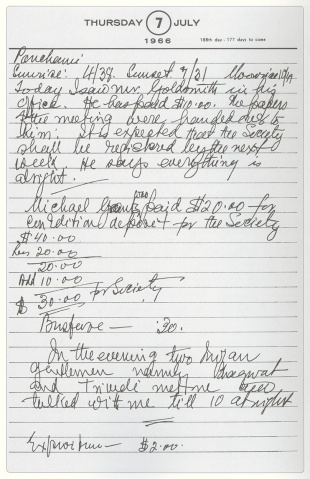 THURSDAY 7 JULY
1966
188th day - 177 days to come
Panchami
Sunrise: 4/38 Sunset 7/31 Moonrise
Today I saw Mr. Goldsmith in his
office. He has paid $10.00. The papers
of the meeting were handed over to
him. It is expected that the Society
shall be registered by the next
week. He says everything is
alright.
Michael Grant paid $20.00 for
con Edition deposit for the Society
$ 40.00
Less 20.00
20.00
Add 10.00
$ 30.00 for Society
Busfare — .30.
In the evening two Indian
gentlemen namely Bhagwat
and Trivedi met me and
talked with me till 10 at night
Expenditure — $2.00.